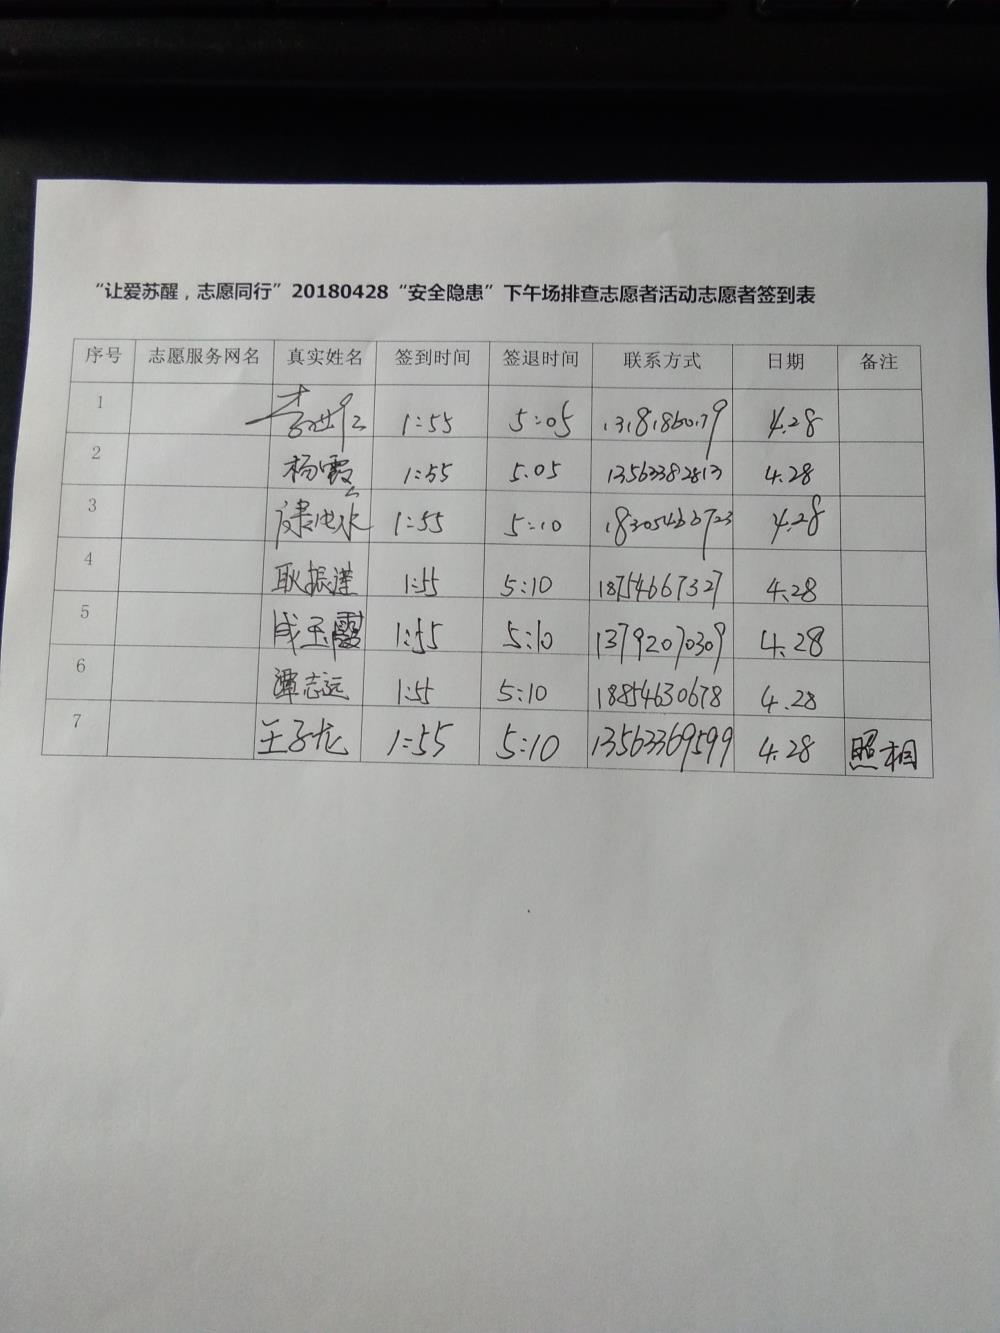 “让爱苏醒，志愿同行”20180428“安全隐患”下午场排查志愿者活动志愿者签到表
序号 志愿服务网名 真实姓名 签到时间 签退时间 联系方式 日期 备注
1 1:55 5:05 4.28
2 杨霞 1:55 5.05 13563382813 4.28
3 1:55 5:10 4.28
4 耿振 1:55 5:10 18754667327 4.28
5 成玉霞 1:55 5:10 13792070309 4.28
6 谭志远 1:55 5:10 18854630678 4.28
7 王子龙 1:55 5:10 13563369599 4.28 照相